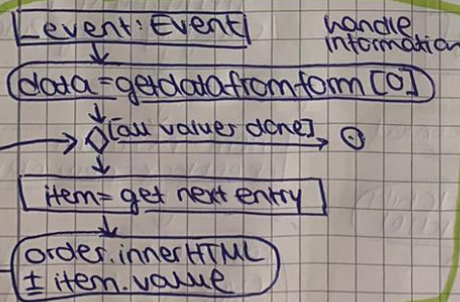 event: Event
handle
information
data=getdatafromform[0]
[all values done]
item= get next entry
order.innerHTML
± item.value